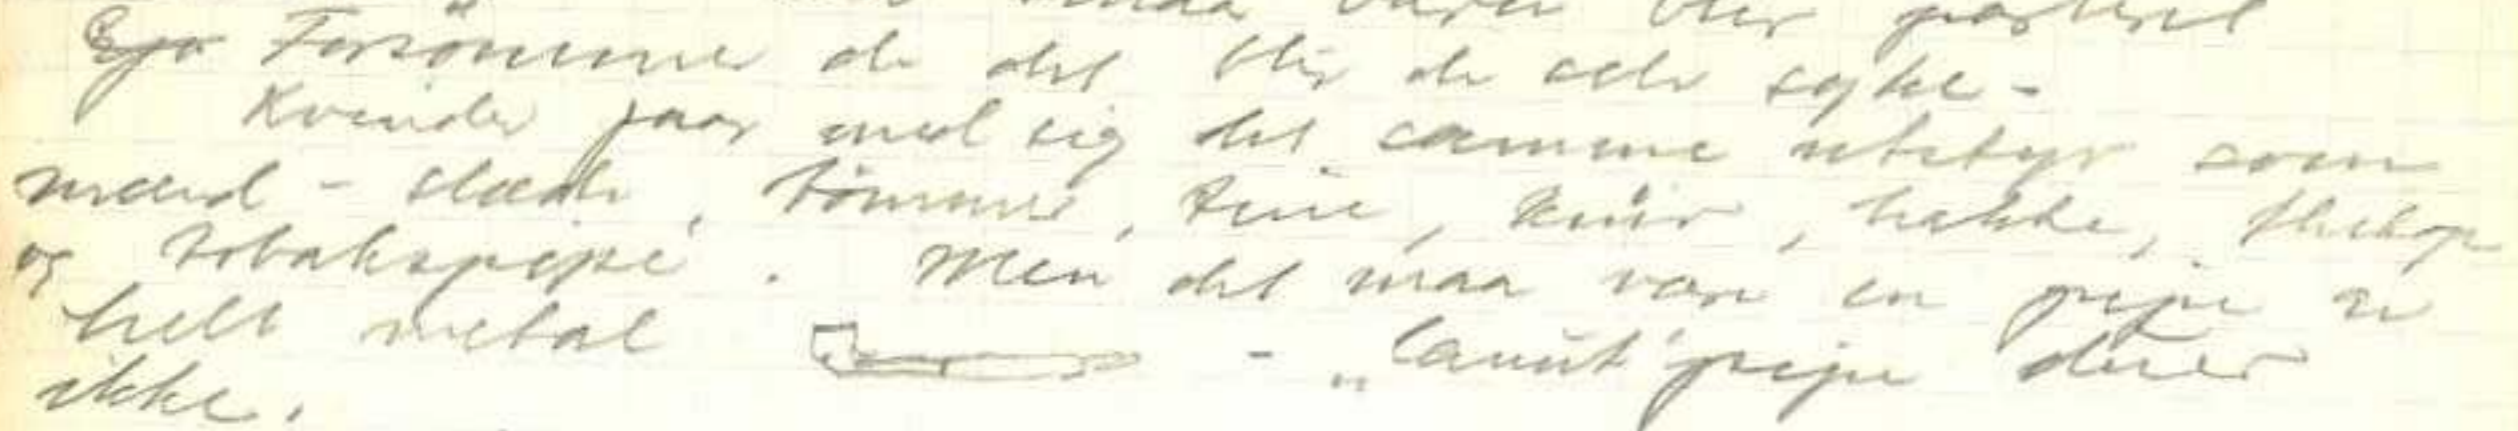 blir
Forsömmer de det blir de selv syke -
Kvinder faar med sig det samme utstyr som
mænd - slæde, tömmer, kniv, hakke, thekop
og tobakspipe. Men det maa være en pipe av
helt metal - „lauút" pipe duer
ikke.